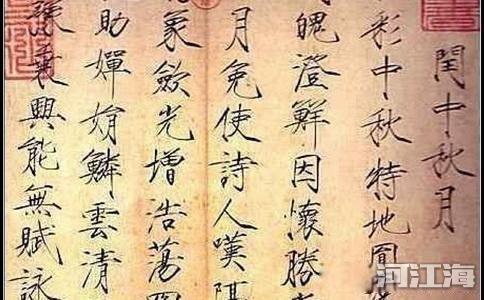 閏中秋月
彩中秋特地圓
魄澄鮮因懷勝
月免使詩人嘆隔
象斂光增浩蕩
助嬋娟鱗雲清
豫乘興能無賦詠
河江海